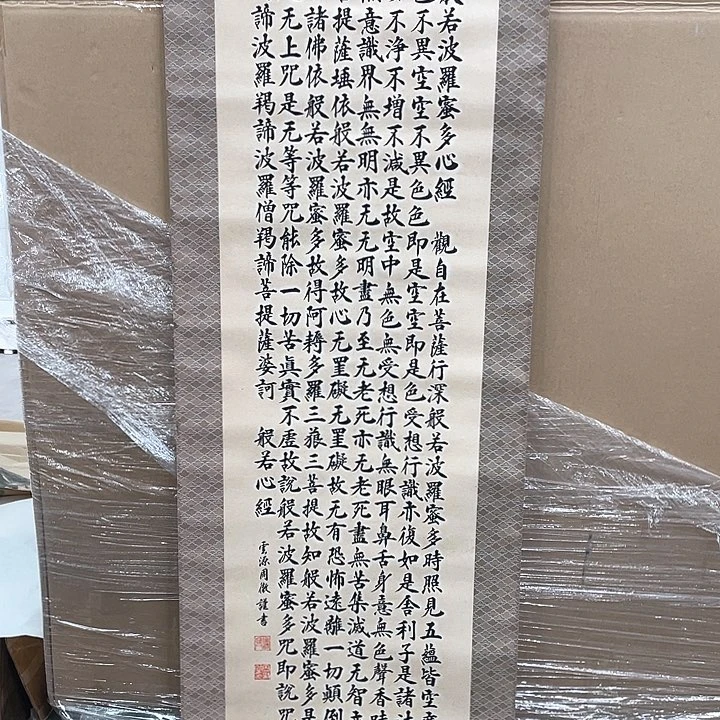 般若波羅蜜多心經 觀自在菩薩行深般若波羅蜜多時照見五蘊皆空度
色不異空空不異色色即是空空即是色受想行識亦復如是舍利子是諸法
不淨不增不減是故空中無色無受想行識無眼耳鼻舌身意無色聲香味
意識界無無明亦无无明盡乃至无老死亦无老死盡無苦集滅道无智亦
菩提薩埵依般若波羅蜜多故心无罣礙无罣礙故无有恐怖遠離一切顛倒
諸佛依般若波羅蜜多故得阿耨多羅三藐三菩提故知般若波羅蜜多是
无上咒是无等等咒能除一切苦眞實不虛故說般若波羅蜜多咒即說咒
諦波羅羯諦波羅僧羯諦菩提薩婆訶 般若心經
謹書